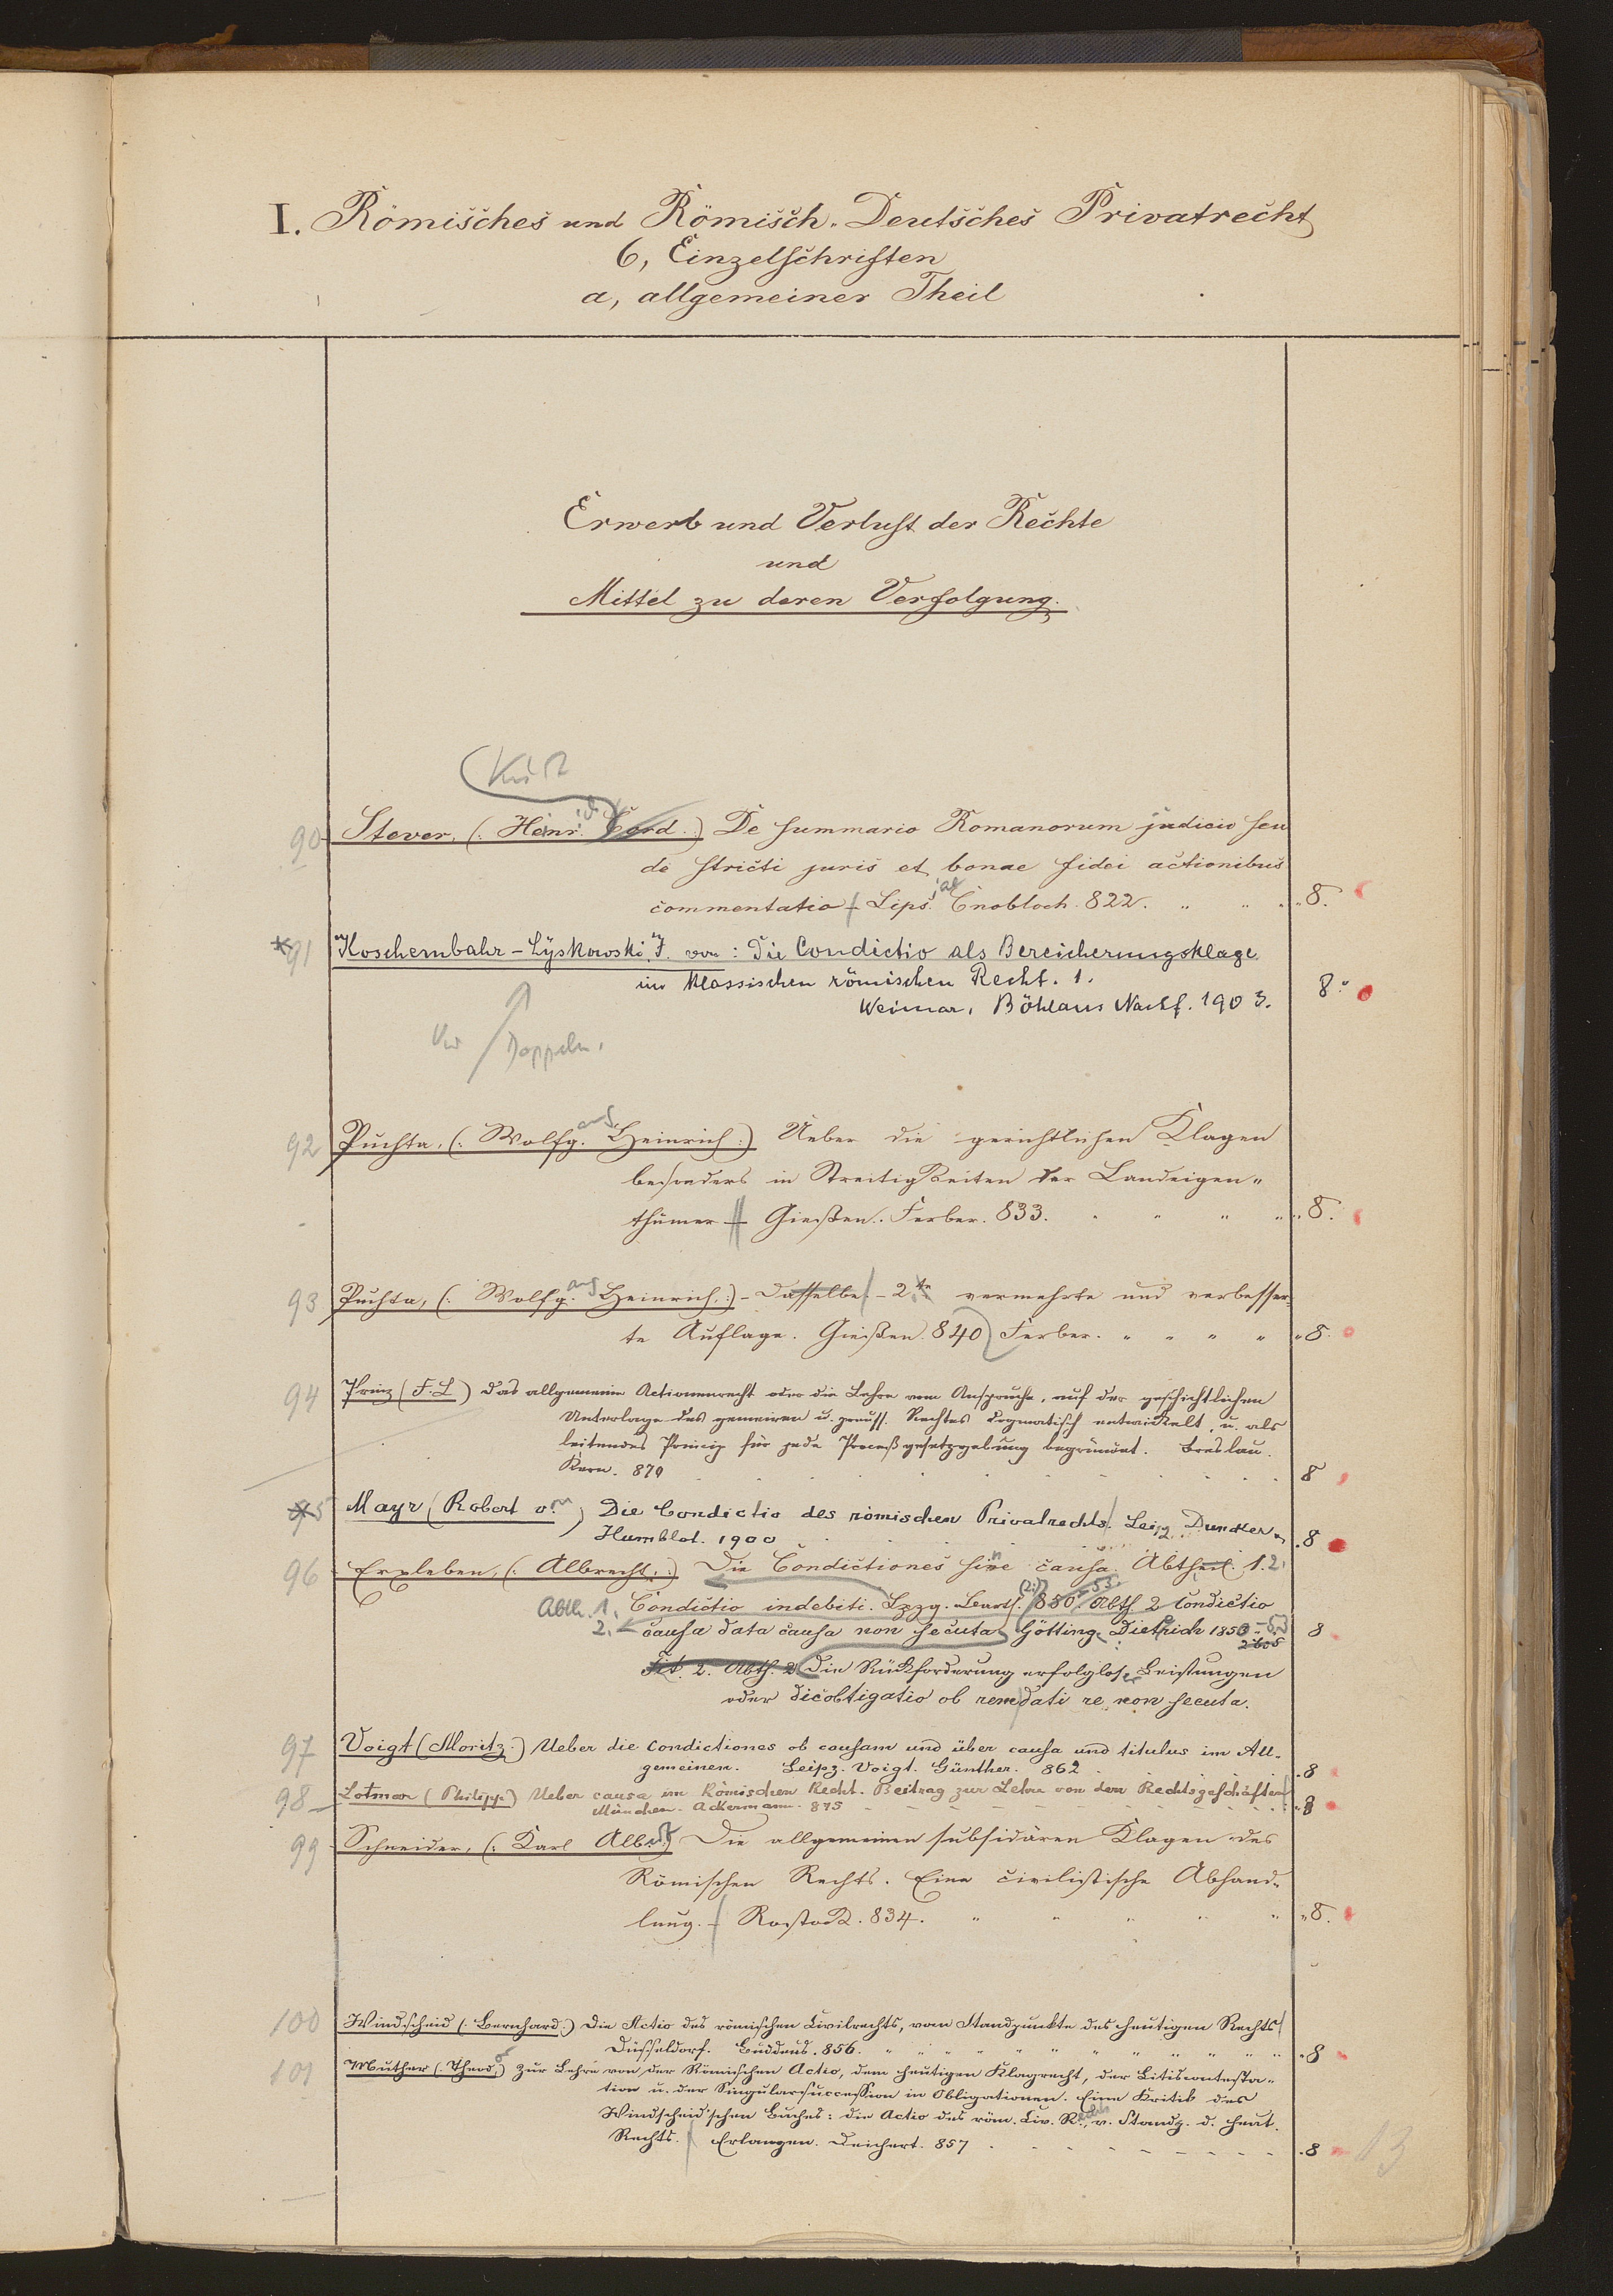 I. Römisches und Römisch-Deutsches Privatrecht
6, Einzelschriften
a, allgemeiner Theil
Erwerb und Verlust der Rechte
und
Mittel zu deren Verfolgung.
90 Stever, (: Heinr. Cord. :) De summario Romanorum judicio seu
de stricti juris et bonae fidei actionibus
commentatio - Lips. Cnobloch. 822. " " " 8.
* 91 Koschembahr-Lyskowski, J. von: Die Condictio als Bereicherungsklage
im klassischen römischen Recht. 1.
Weimar, Böhlaus Nachf. 1903. 8°
Doppeln.
92 Puchta, (: Wolfg. Heinrich :) Ueber die gerichtlichen Klagen
besonders in Streitigkeiten der Landeigen-
thümer - Gießen. Ferber. 833. " " " " 8.
93 Puchta, (: Wolfg. Heinrich :) - Dasselbe - 2te vermehrte und verbesser-
te Auflage. Gießen. 840 Ferber. " " " " " 8.
94 Prinz (F. L) Das allgemeine Actionenrecht oder die Lehre vom Anspruche, auf der geschichtlichen
Unterlage des gemeinen u. preuss. Rechtes dogmatisch entwickelt, u. als
leitendes Princip für jede Proceßgesetzgebung begründet. Breslau.
Kern. 870 8
* 95 Mayr (Robert von) Die Condictio des römischen Privatrechts. Leipz. Duncker u.
Humblot. 1900 8
96 Erxleben, (: Albrecht :) Die Condictiones sine causa. Abtheil. 1. 2.
Abth. 1. Condictio indebiti. Lpzg. Barth. 850. -53. Abth 2 Condictio
2. causa data causa non secuta Götting. Dietrich 1853 8
Tit. 2. Abth. 2 Die Rückforderung erfolglos. Leistungen
oder dicobligatio ob rem dati re non secuta.
97 Voigt (Moritz.) Ueber die Condictiones ob causam und über causa und titulus im All-
gemeinen. Leipz. Voigt. Günther. 862 8
98 Lotmar (Philipp) Ueber causa im Römischen Recht. Beitrag zur Lehre von den Rechtsgeschäften
München. Ackermann. 875 8
99 Schneider, (: Karl Alb. :) Die allgemeinen subsidären Klagen des
Römischen Rechts. Eine civilistische Abhand-
lung. - Rostock. 834. " " " " " 8.
100 Windscheid (: Bernhard :) Die Actio des römischen Civilrechts, vom Standpunkte des heutigen Rechts
Düsseldorf. Buddeus. 856. 8
101 Muther (: Theod. :) Zur Lehre von der Römischen Actio, dem heutigen Klagrecht, der Litiscontesta-
tion u. der Singularsuccession in Obligationen. Eine Kritik des
Windscheid'schen Buches: die Actio des röm. Civ. R., v. Standp. d. heut.
Rechts. Erlangen. Deichert. 857 8
13